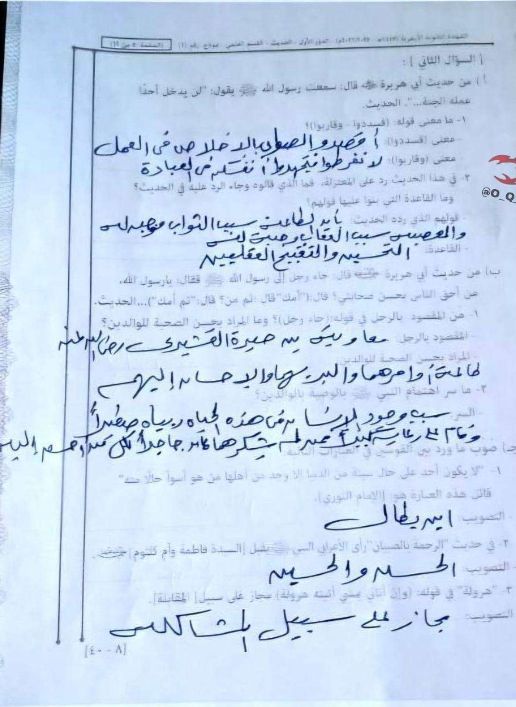 السؤال الثاني :
أ ) من حديث أبي هريرة قال: سمعت رسول الله ﷺ يقول: "لن يدخل أحدًا
عمله الجنة..." الحديث.
١- ما معنى قوله: (فسددوا - وقاربوا)؟
معنى (فسددوا): أقصدوا الصواب بالإخلاص في العمل
معنى (وقاربوا): لا تفرطوا فتجهدوا أنفسكم في العبادة
٢- في هذا الحديث رد على المعتزلة، فما الذي قالوه وجاء الرد عليه في الحديث؟
وما القاعدة التي بنوا عليها قولهم؟
- قولهم الذي رده الحديث: بأن الطاعة سبب الثواب وموجبة له
والمعصية سبب العقاب وموجبة له
- القاعدة: التحسين والتقبيح العقليين
ب) من حديث أبي هريرة قال: جاء رجل إلى رسول الله ﷺ فقال: يا رسول الله،
من أحق الناس بحسن صحابتي؟ قال: ("أمك" قال: ثم من؟ قال: "ثم أمك")...الحديث.
١- من المقصود بالرجل في قوله: (جاء رجل)؟ وما المراد بحسن الصحبة للوالدين؟
- المقصود بالرجل: معاوية بن حيدة القشيري رضي الله عنه
- المراد بحسن الصحبة للوالدين:
طاعة أوامرهما والبر بهما والإحسان إليهم
٢- ما سر اهتمام النبي ﷺ بالوصية بالوالدين؟
- السر: سبب وجود الإنسان في هذه الحياة ربياه صغيرا
ج) صوب ما ورد بين القوسين في العبارات التالية:
١- "لا يكون أحد على حال سيئة من الدنيا إلا وجد من أهلها من هو أسوأ حالًا منه"
قائل هذه العبارة هو: [الإمام النووي].
- التصويب: ابن بطال
٢- في حديث "الرحمة بالصبيان" رأى الأعرابي النبي ﷺ يقبل [السيدة فاطمة وأم كلثوم]
- التصويب: الحسن والحسين
٣- "هرولة" في قوله: (وإن أتاني يمشي أتيته هرولة) مجاز على سبيل [المقابلة].
- التصويب: مجاز على سبيل المشاكلة
[٨ - ٤٠]